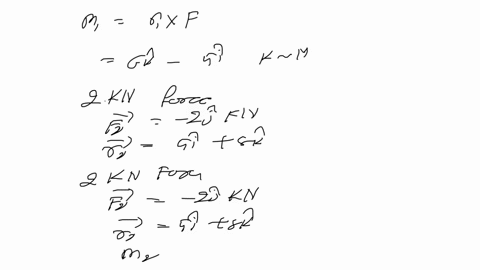 m₁ = r₁ × F
= 6k̂ - 5î K~M
2 KN force
F₂ = -2ĵ KN
r₂ = 5î + 8k̂
2 KN Force
F₂ = -2ĵ KN
r₂ = 5î + 8k̂
m₂